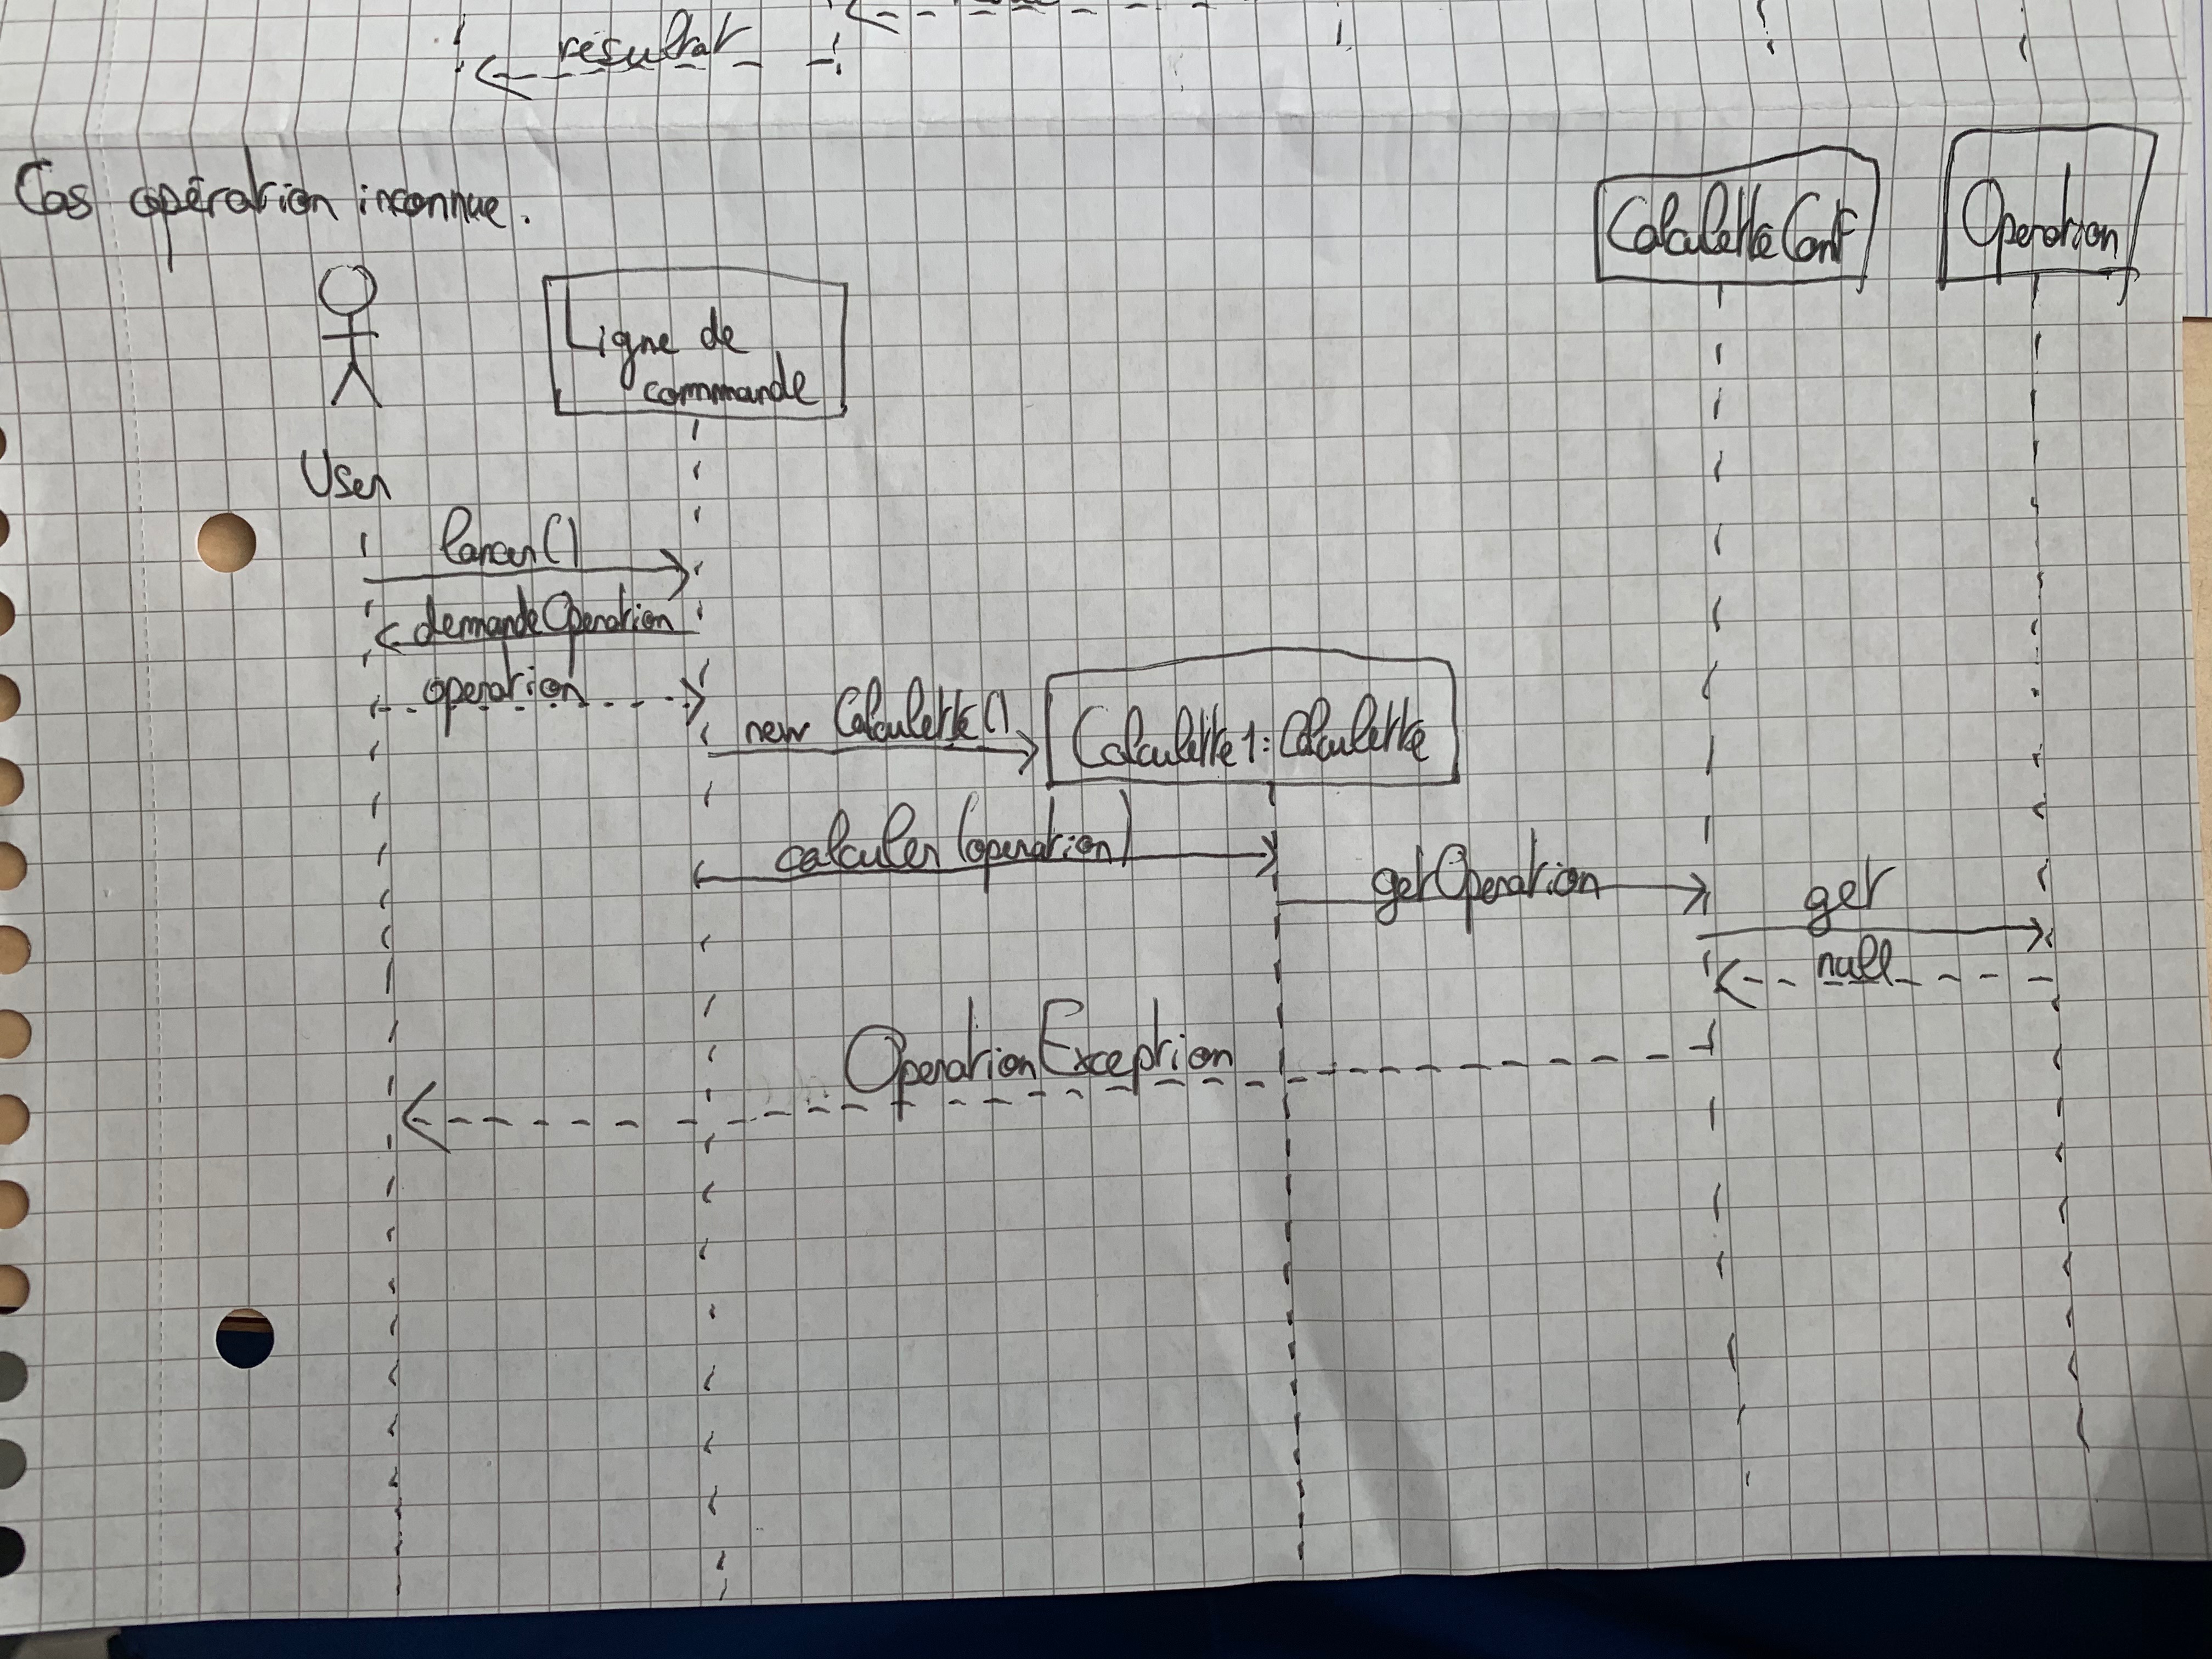 résultat
Cas opération inconnue.
User
Ligne de
commande
CalculetteConf
Operation
lancer()
demandeOperation
operation
new Calculette()
Calculette1:Calculette
calculer(operation)
getOperation
get
null
OperationException